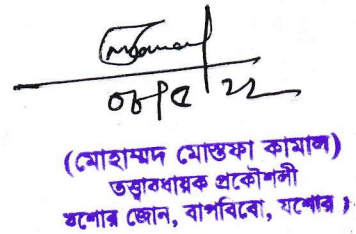 ০৮/৫/২২
(মোহাম্মদ মোস্তফা কামাল)
তত্ত্বাবধায়ক প্রকৌশলী
যশোর জোন, বাপবিবো, যশোর।